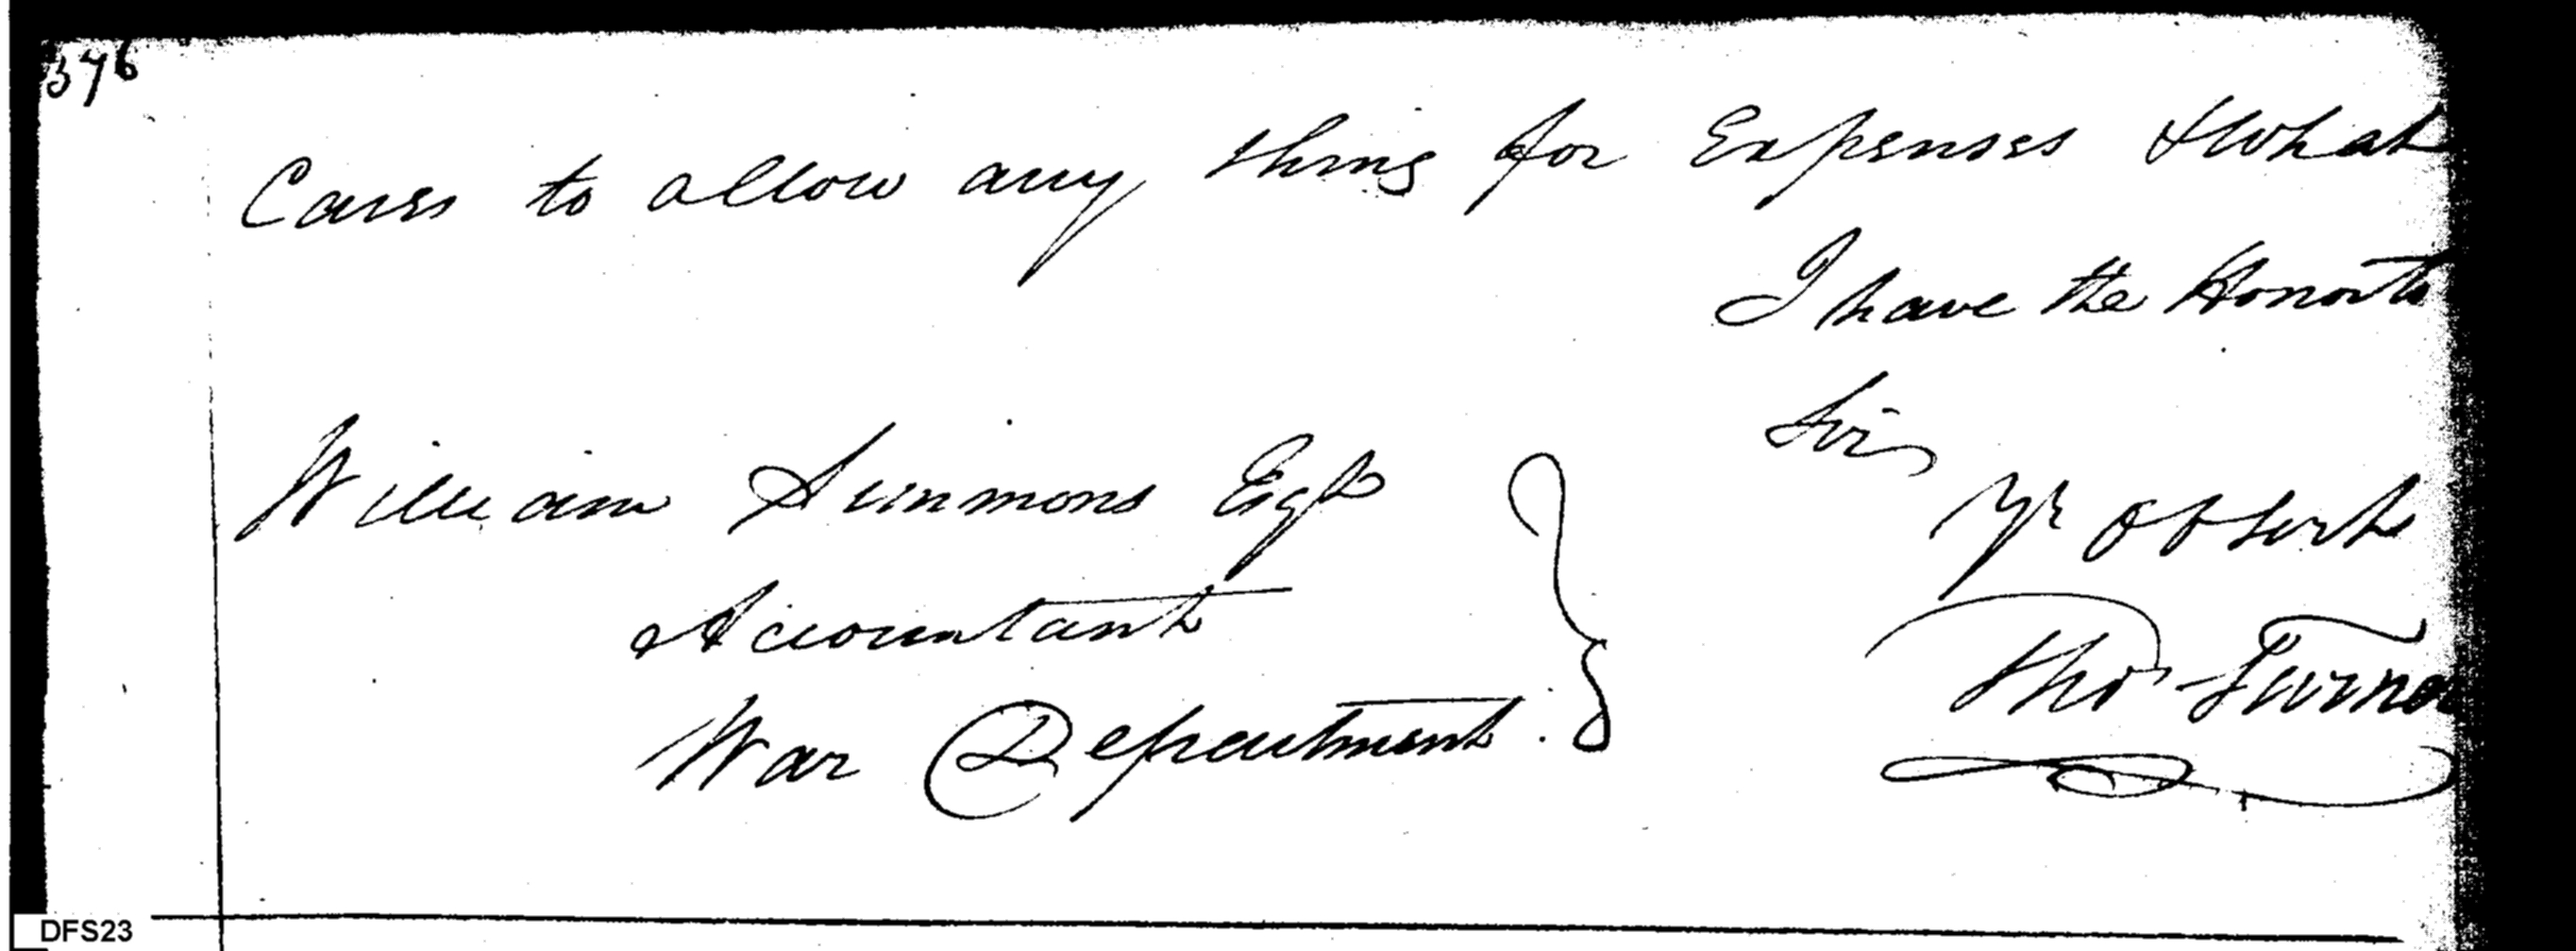 376
Cases to allow any thing for Expenses & What
I have the Honor to
Sir
William Simmons Esqr
Yr Ob Servt
Accountant
War Department.
Thos Turner
DFS23